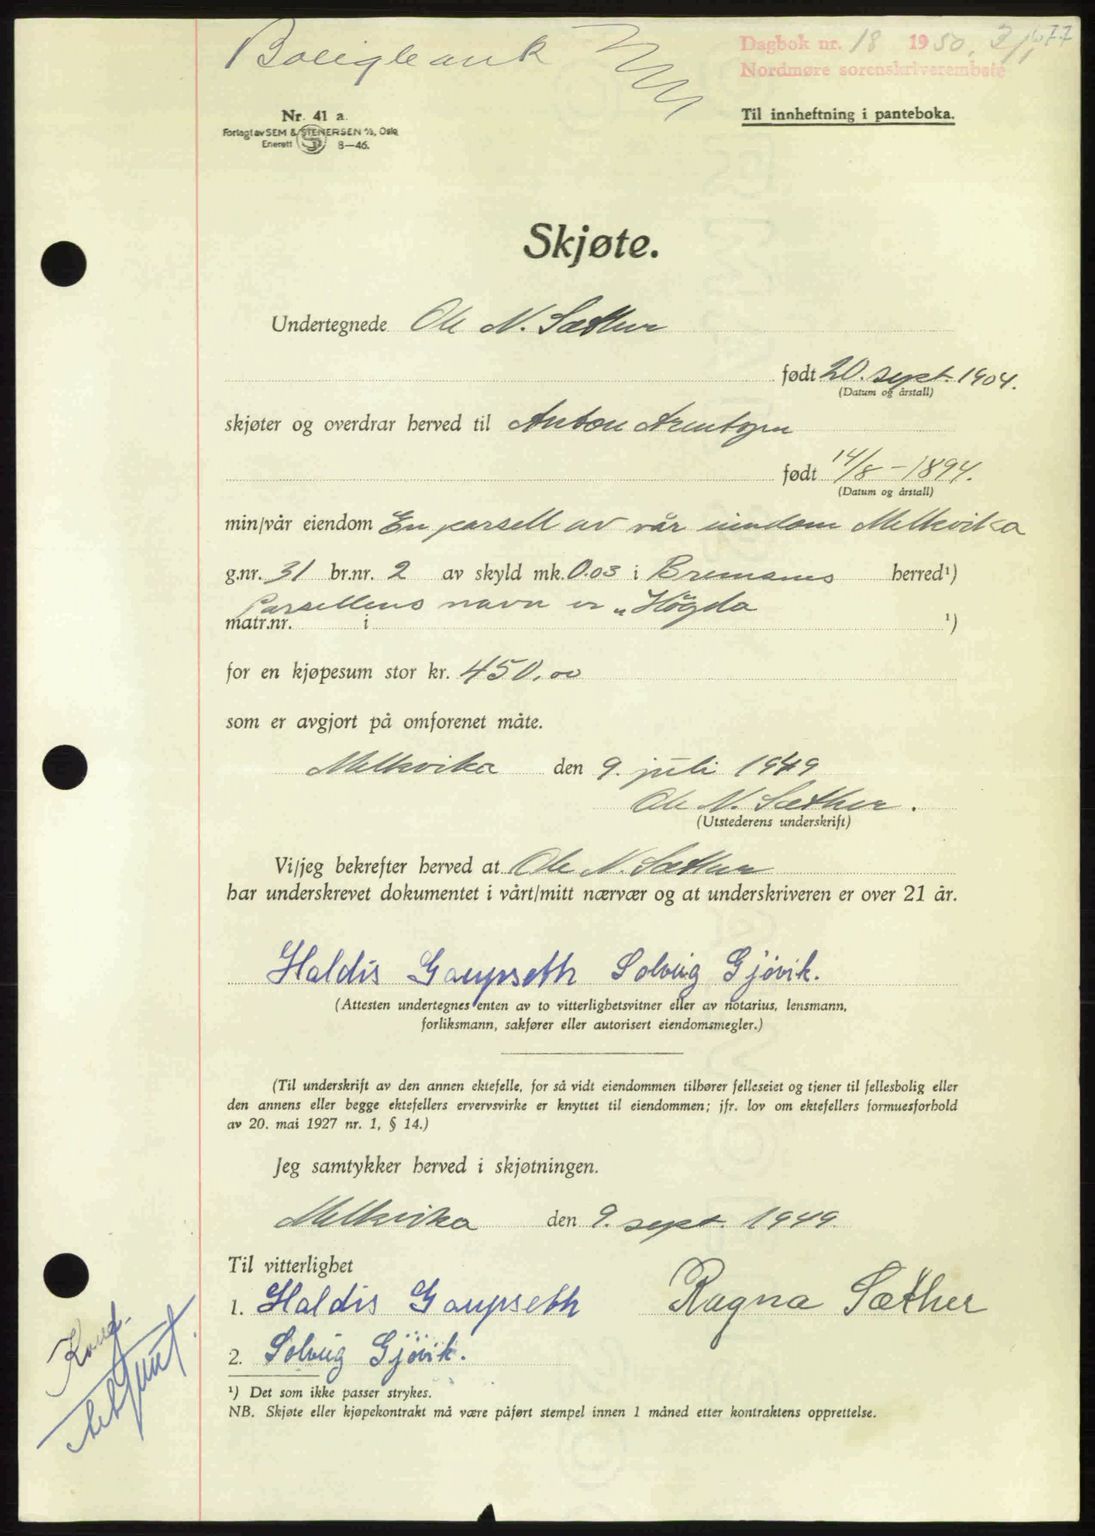 Boligbank
Dagbok nr. 18 1950, 3/1
677
Nordmøre sorenskriverembete
Nr. 41 a.
Forlagt av SEM & STENERSEN A/S, Oslo
Enerett 8—46.
Til innheftning i panteboka.
Skjøte.
Undertegnede Ole N. Sæther
født 20. sept. 1904.
(Datum og årstall)
skjøter og overdrar herved til Anton Arentsen
født 14/8 - 1894.
(Datum og årstall)
min/vår eiendom En parsell av vår eiendom Melkvika
g.nr. 31 br.nr. 2 av skyld mk. 0.03 i Bremsnes herred¹)
Parsellens navn er "Høgda
matr.nr. i ¹)
for en kjøpesum stor kr. 450,00
som er avgjort på omforenet måte.
Melkvika den 9. juli 1949
Ole N. Sæther.
(Utstederens underskrift)
Vi/jeg bekrefter herved at Ole N. Sæther
har underskrevet dokumentet i vårt/mitt nærvær og at underskriveren er over 21 år.
Haldis Gaupseth Solveig Gjövik.
(Attesten undertegnes enten av to vitterlighetsvitner eller av notarius, lensmann,
forliksmann, sakfører eller autorisert eiendomsmegler.)
(Til underskrift av den annen ektefelle, for så vidt eiendommen tilhører felleseiet og tjener til fellesbolig eller
den annens eller begge ektefellers ervervsvirke er knyttet til eiendommen; jfr. lov om ektefellers formuesforhold
av 20. mai 1927 nr. 1, § 14.)
Jeg samtykker herved i skjøtningen.
Melkvika den 9. sept. 1949.
Til vitterlighet
1. Haldis Gaupseth Ragna Sæther
2. Solveig Gjövik.
¹) Det som ikke passer strykes.
NB. Skjøte eller kjøpekontrakt må være påført stempel innen 1 måned etter kontraktens opprettelse.